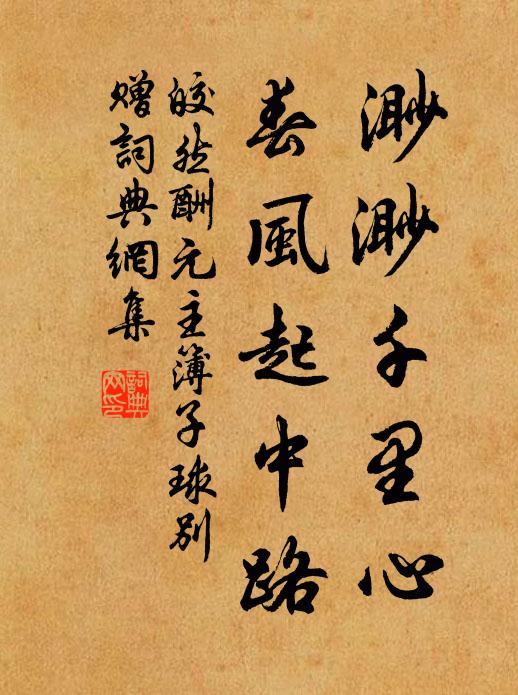 渺渺千里心
春風起中路
皎然酬元主簿子球別
贈詞典網集
詞典
网印